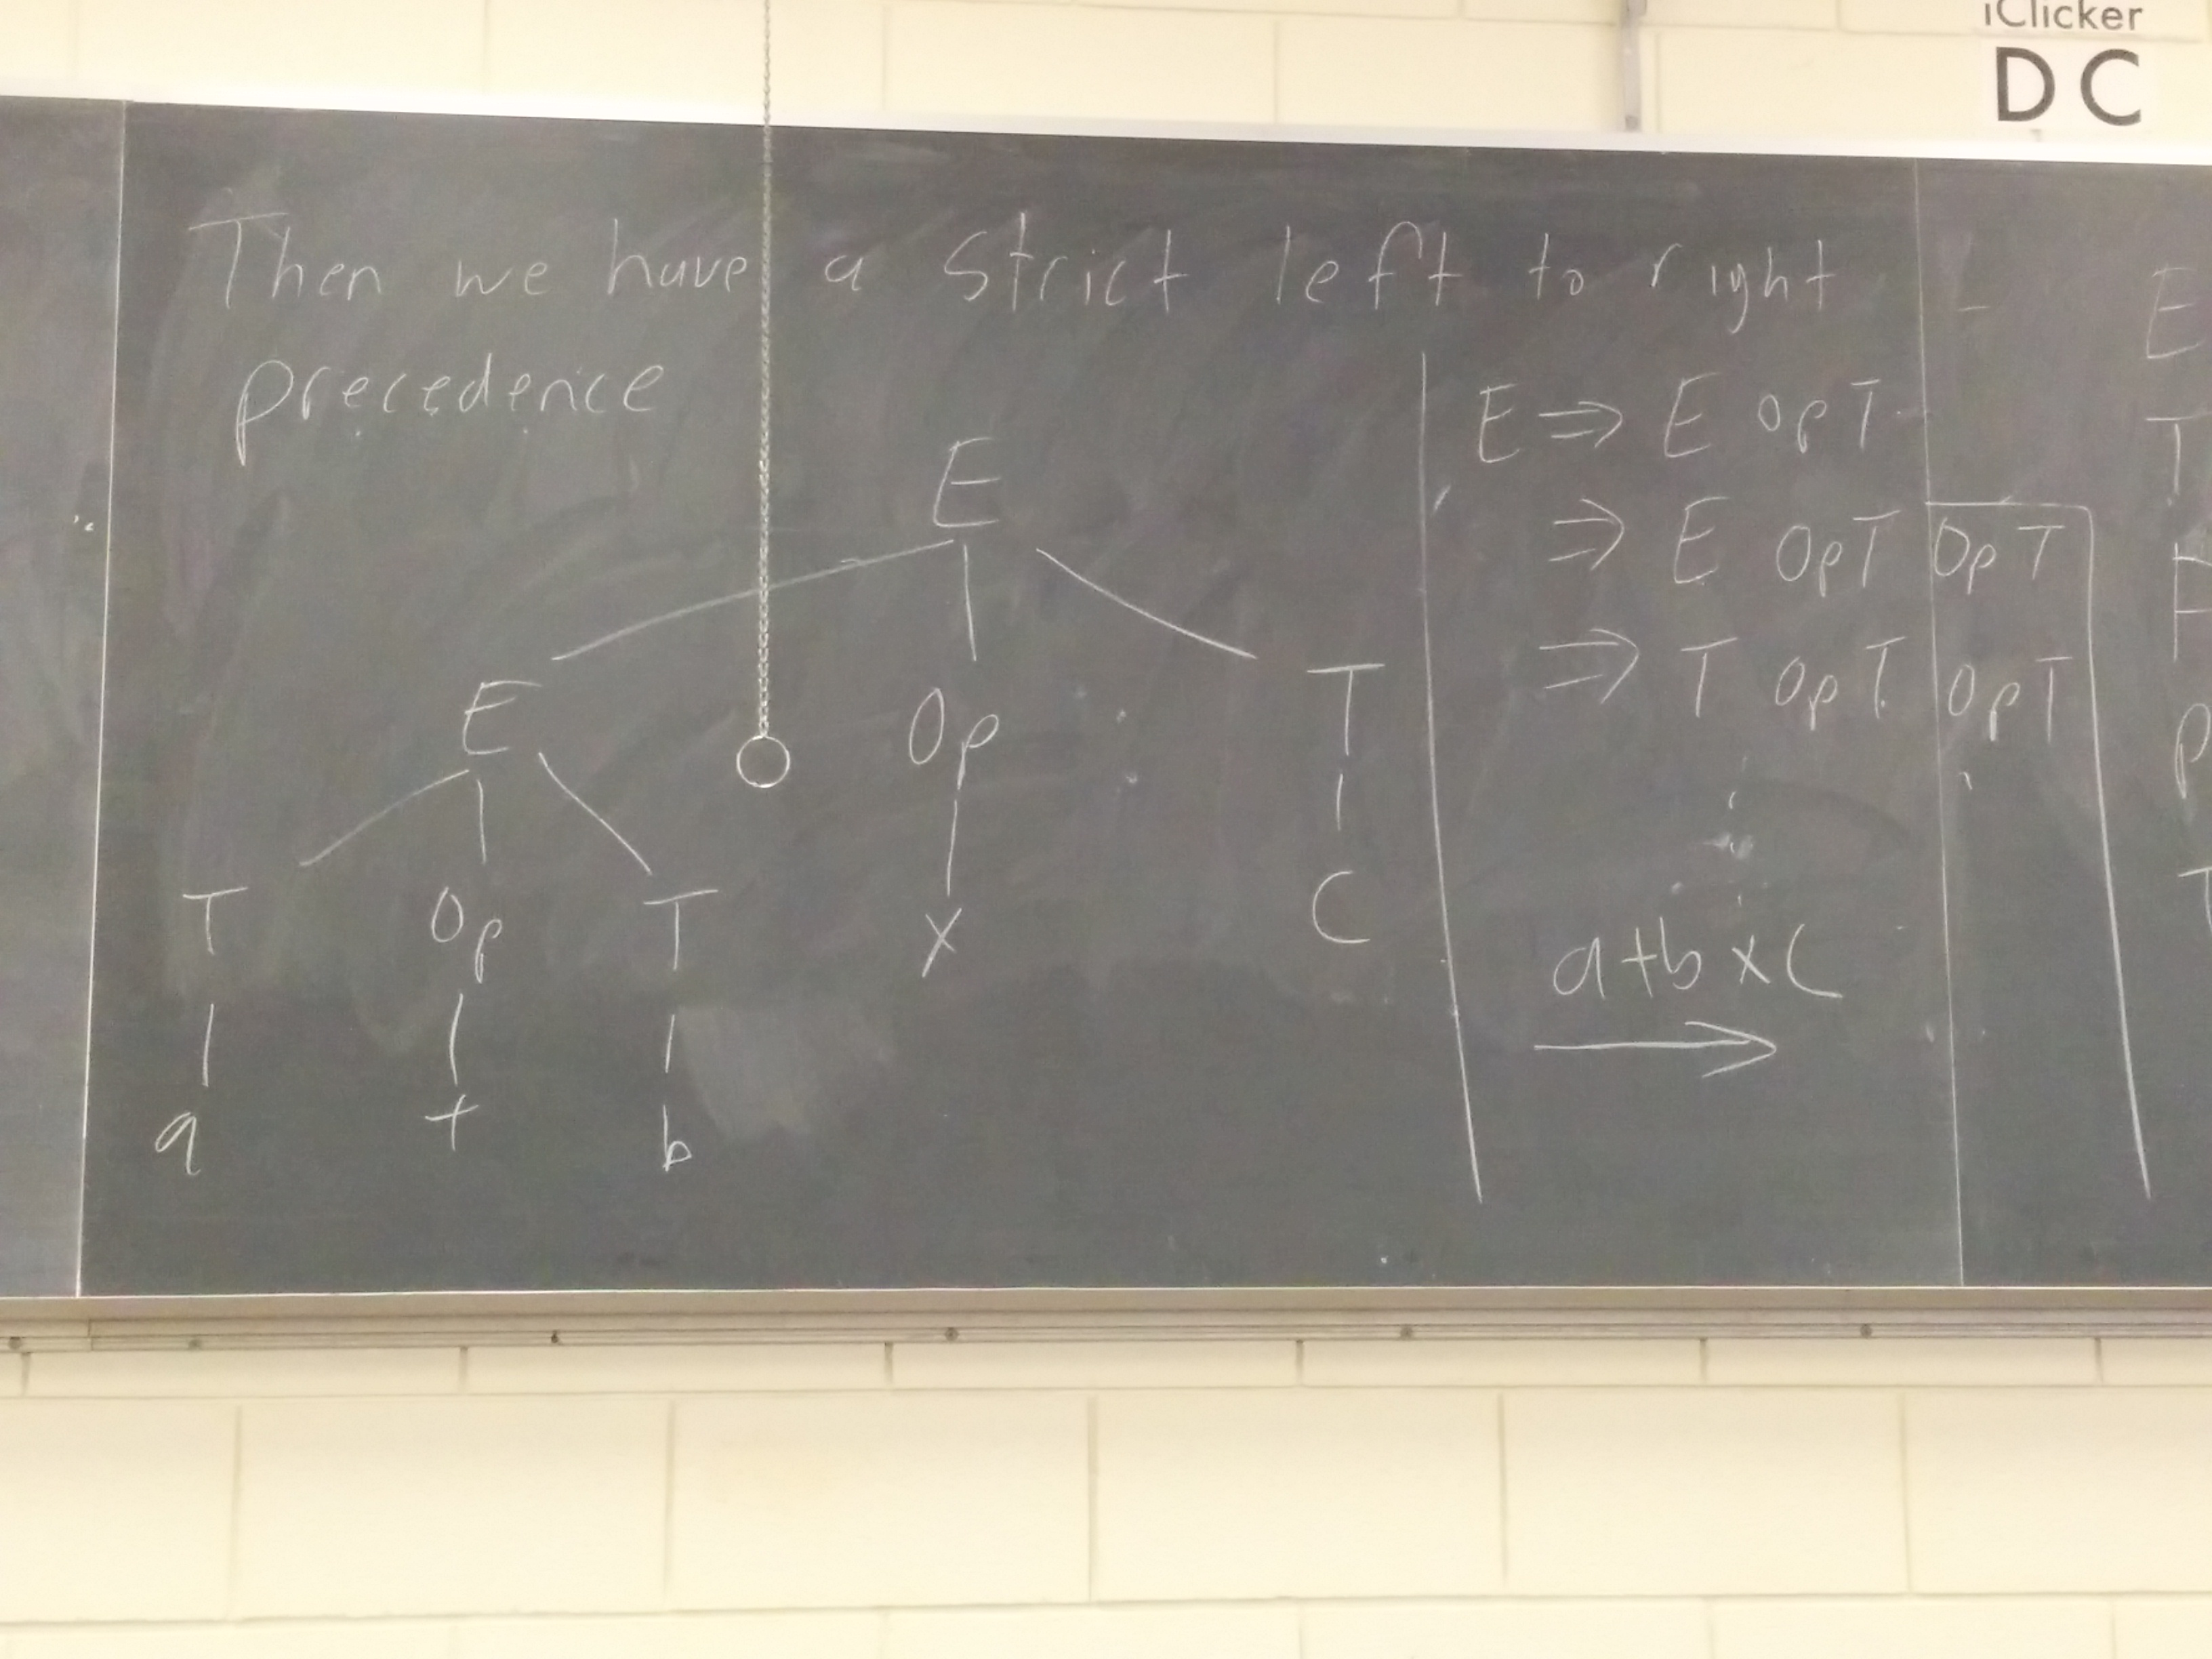 iClicker
D C
Then we have a strict left to right
precedence
E
E Op T
T Op T X C
a + b
E ⇒ E Op T
⇒ E Op T Op T
⇒ T Op T Op T
a+b×C
→
E
T
P
T